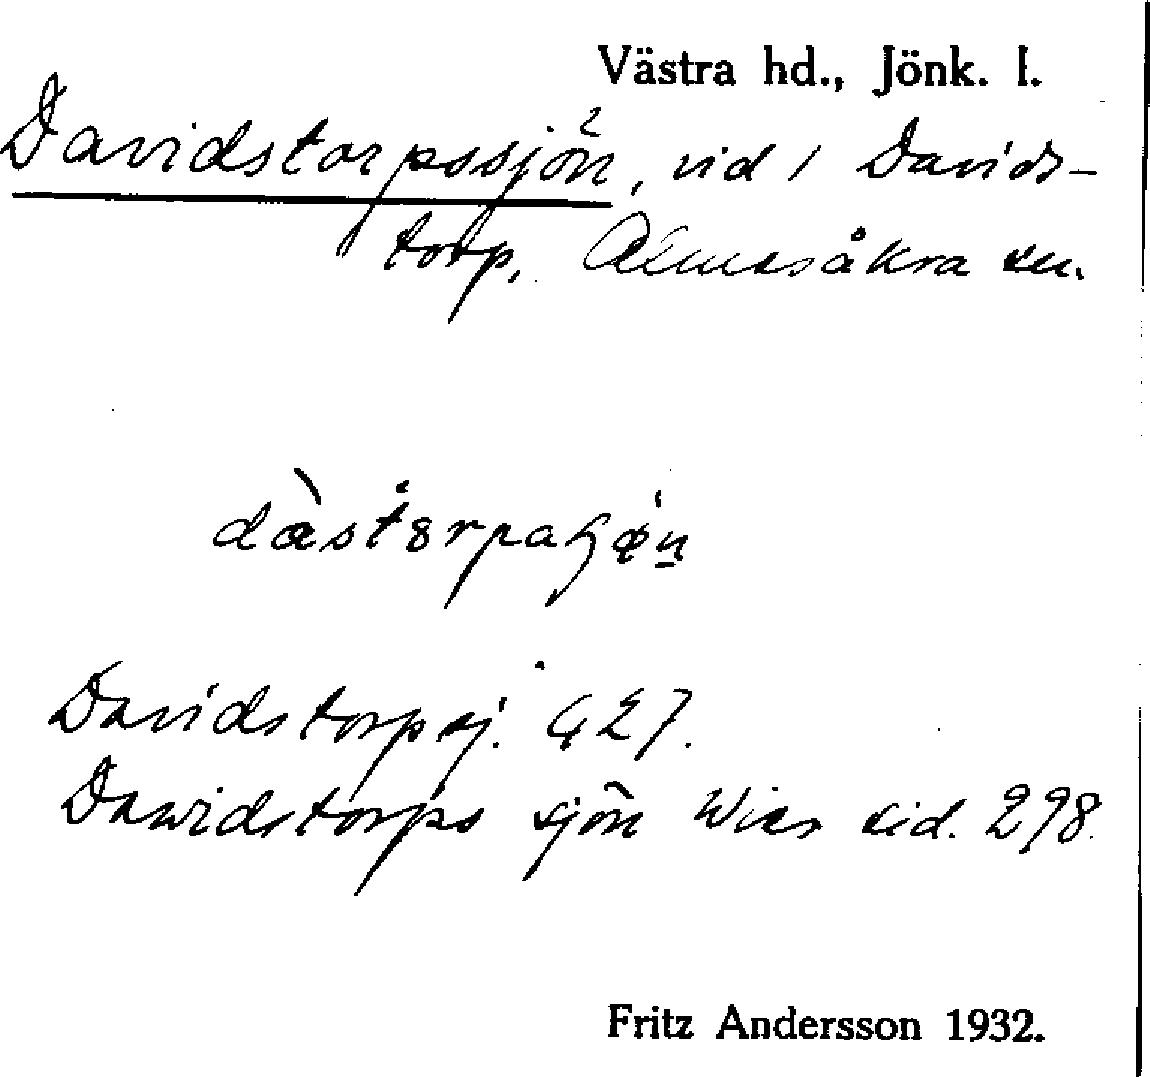 Västra hd., Jönk. l.
Davidstorpssjön, vid 1 Davids-
torp, Almesåkra sn.
Davidstorpsj.
Dawidstorps sjön Wies sid. 298.
Fritz Andersson 1932.